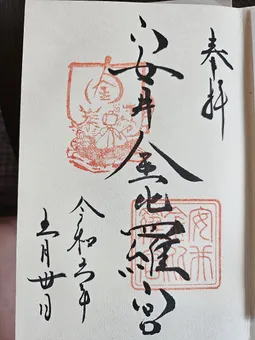 奉拝
安井金比羅宮
令和六年
五月廿日
金